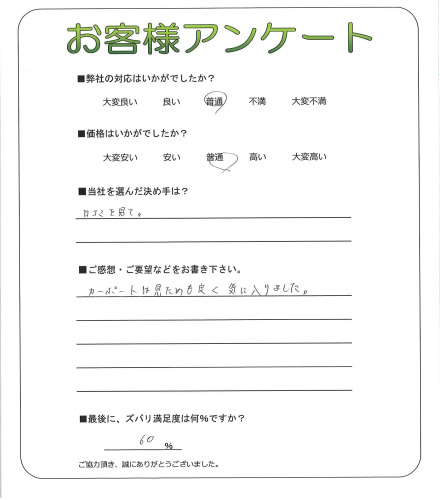 お客様アンケート
■弊社の対応はいかがでしたか？
大変良い 良い 普通 不満 大変不満
■価格はいかがでしたか？
大変安い 安い 普通 高い 大変高い
■当社を選んだ決め手は？
口コミを見て。
■ご感想・ご要望などをお書き下さい。
カーポートは見ためも良く気に入りました。
■最後に、ズバリ満足度は何％ですか？
60 ％
ご協力頂き、誠にありがとうございました。